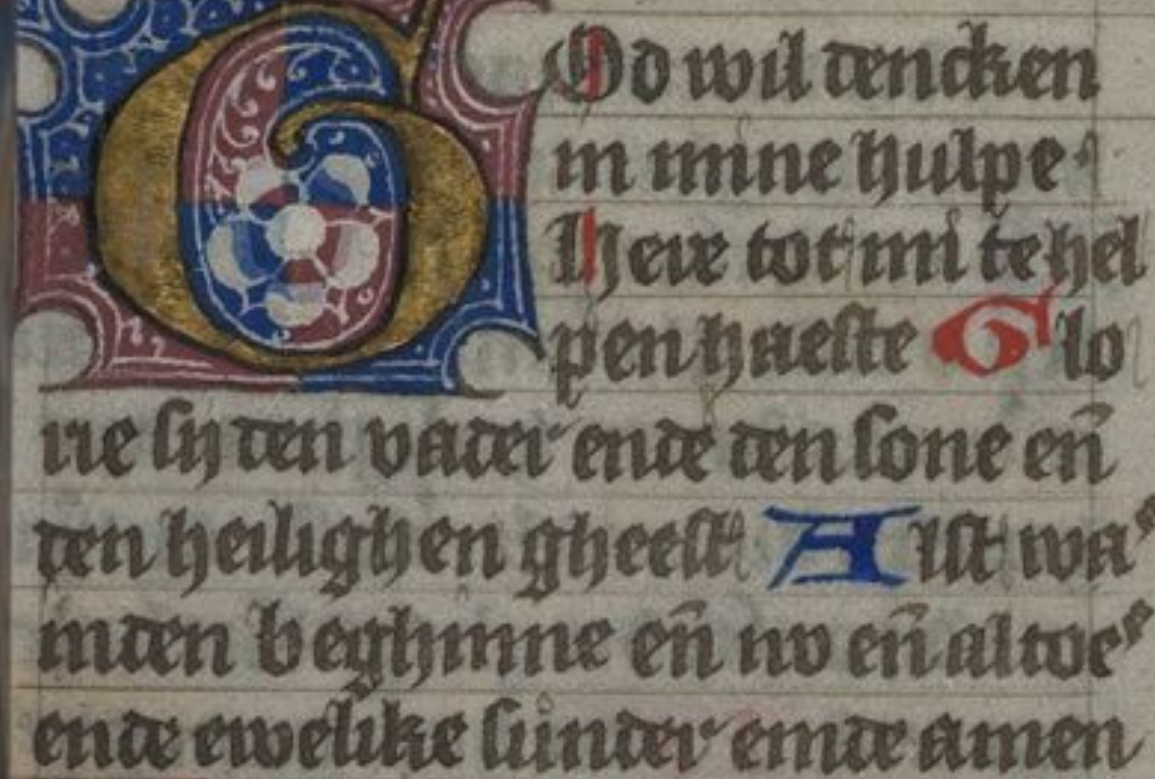 GOd wil dencken
in mine hulpe
Here tot mi te hel
pen haeste Glo
rie sy den vader ende den sone en̄
den heilighen gheest Alst was
inden beghinne en̄ nv en̄ altoes
ende ewelike sunder einde amen